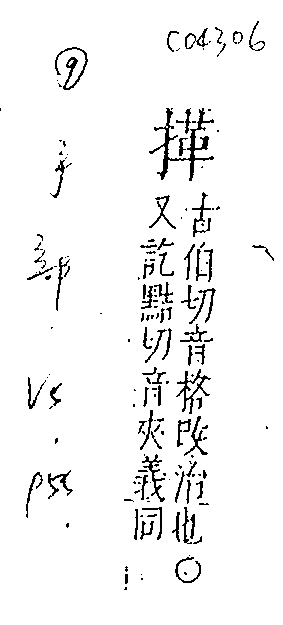 C04306
古伯切音格改治也○
又訖點切音夾義同
⑨手部.V5.P55.